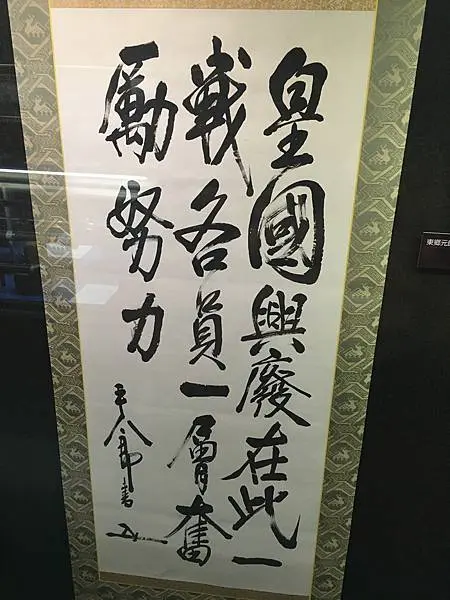 皇國興廢在此一
戰各員一層奮
勵努力
平八郎書
東郷元